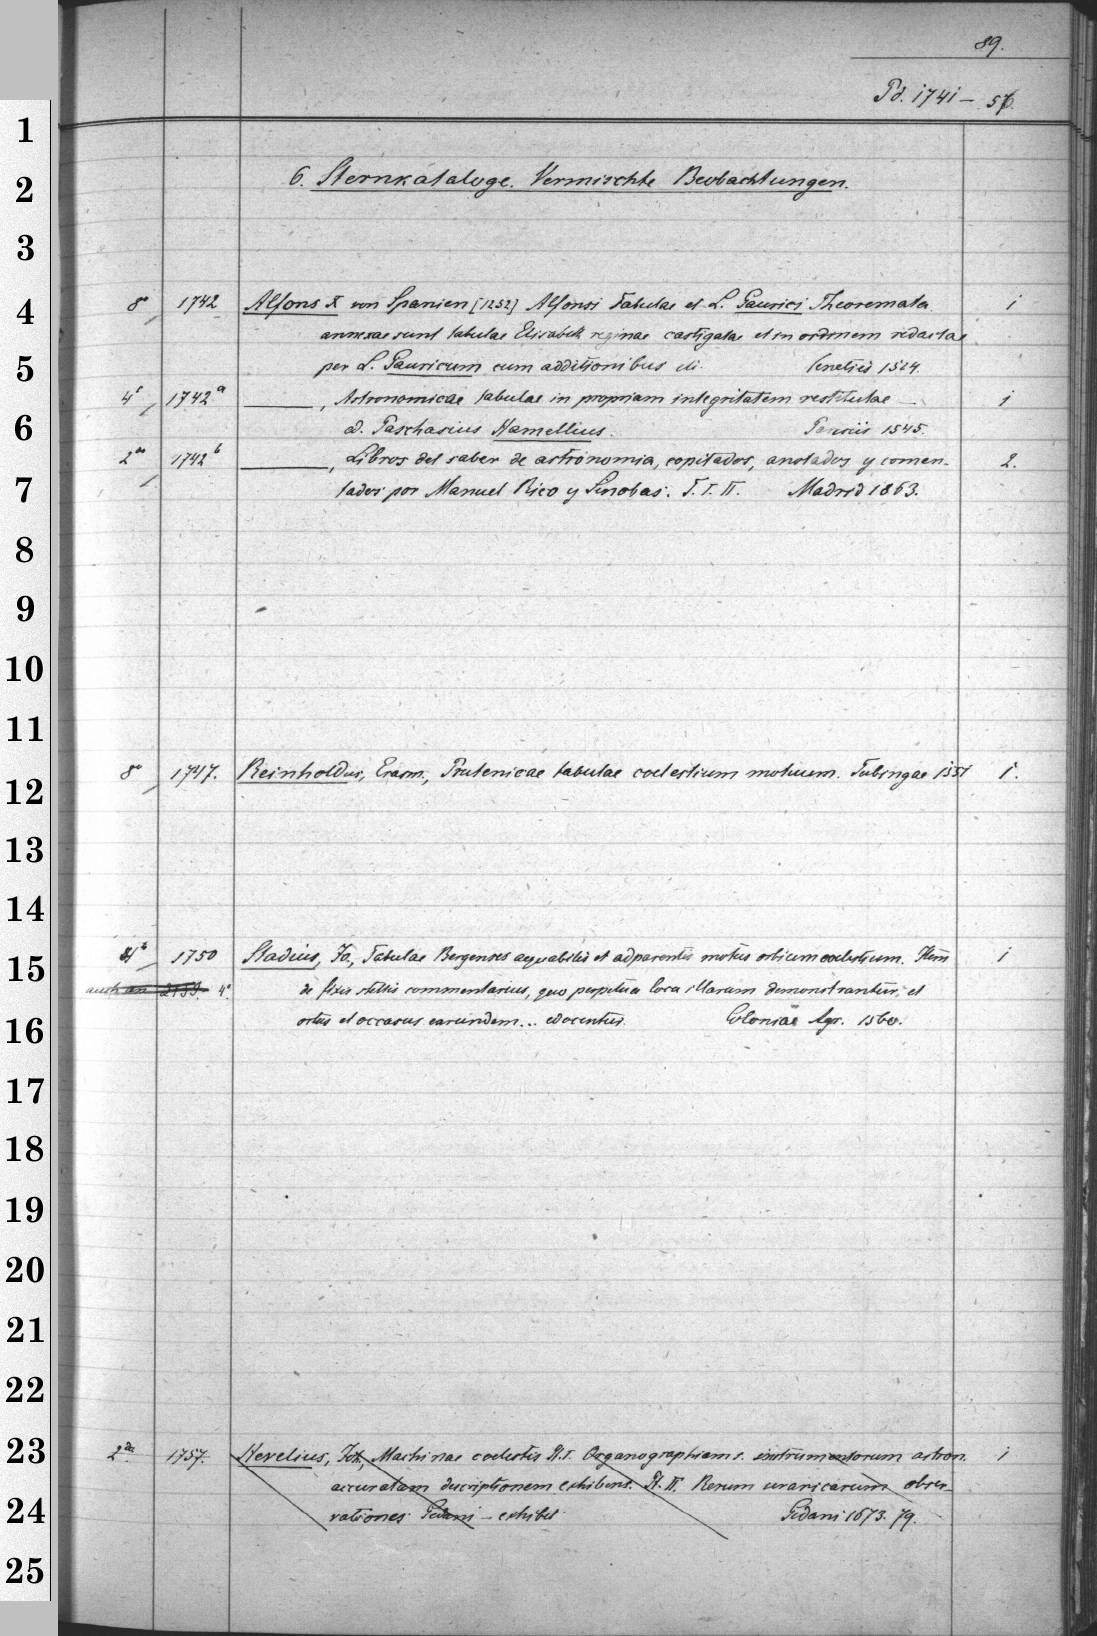 89.
Pd. 1741 – 56.
6. Sternkataloge. Vermischte Beobachtungen.
8° 1742 Alfons X von Spanien [1252] Alfonsi Tabulae et L. Gaurici Theoremata 1
annexae sunt tabulae Elisabeth reginae castigatae et in ordinem redactae
per L. Gauricum cum additionibus etc. Venetiis 1524.
4° 1742a ———, Astronomicae tabulae in propriam integritatem restitutae — 1
ed. Paschasius Hamellius. Parisiis 1545.
2° 1742b ———, Libros del saber de astronomia, copilados, anotados y comen- 2.
tados por Manuel Rico y Sinobas. T. I. II. Madrid 1863.
8° 1747. Reinholdus, Erasm., Prutenicae tabulae coelestium motuum. Tubingae 1551 1.
1750 Stadius, Jo., Tabulae Bergenses aequabilis et adparentis motus orbium coelestium. Item 1
auch an 4°.
de fixis stellis commentarius, quo perpetua loca illarum demonstrantur, et
ortus et occasus earundem... edocentur. Coloniae Agr. 1560.
2° 1757. Hevelius, Joh., Machinae coelestis Pt. I. Organographiam s. instrumentorum astron. 1
accuratam descriptionem exhibens. Pt. II. Rerum uranicarum obser-
vationes Gedani – exhibet Gedani 1673. 79.
1
2
3
4
5
6
7
8
9
10
11
12
13
14
15
16
17
18
19
20
21
22
23
24
25